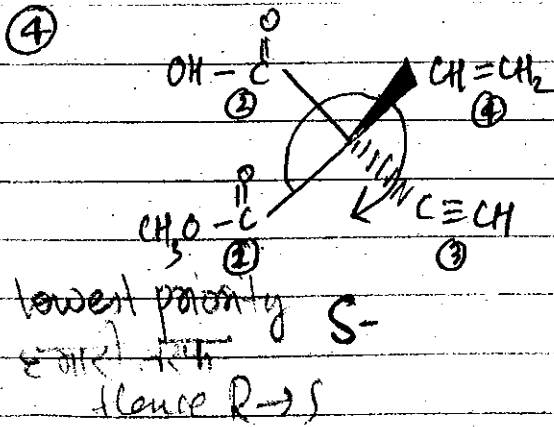 ④
O
OH-C
CH=CH₂
②
④
O
CH₃O-C
C≡CH
①
③
lowest priority S-
हमारी तरफ
Hence R→S